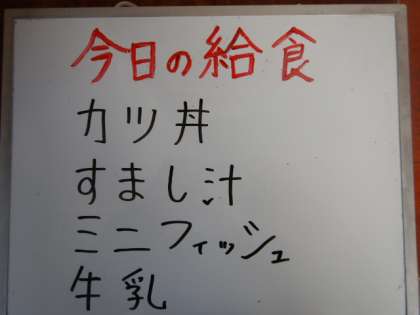 今日の給食
カツ丼
すまし汁
ミニフィッシュ
牛乳